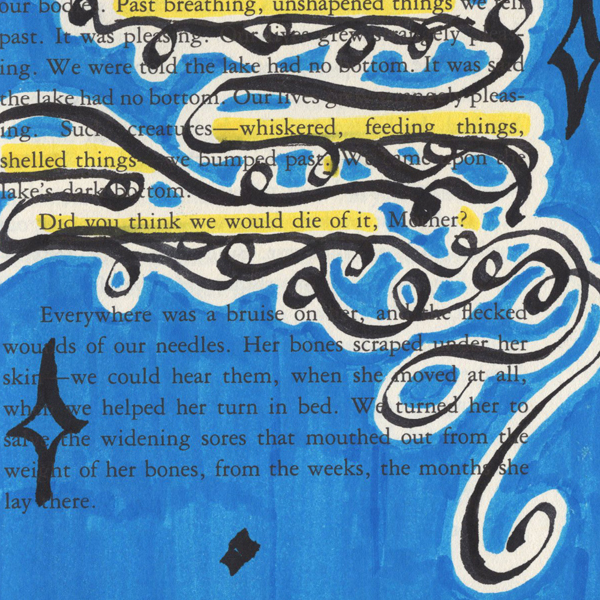 our bodies. Past breathing, unshapened things we fell
past. It was pleasing. Our lives grew strangely pleas-
ing. We were told the lake had no bottom. It was said
the lake had no bottom. Our lives grew strangely pleas-
ing. Such creatures—whiskered, feeding things,
shelled things—we bumped past. We came upon the
lake's dark bottom.
Did you think we would die of it, Mother?
Everywhere was a bruise on her, and the flecked
wounds of our needles. Her bones scraped under her
skin—we could hear them, when she moved at all,
when we helped her turn in bed. We turned her to
salve the widening sores that mouthed out from the
weight of her bones, from the weeks, the months she
lay there.